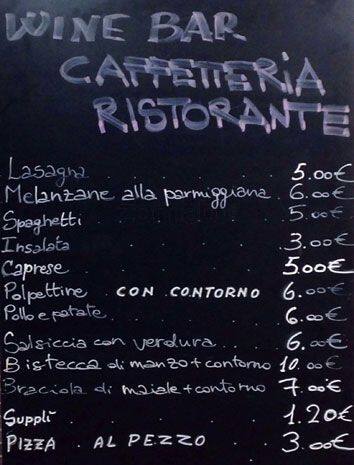 WINE BAR
CAFFETTERIA
RISTORANTE
Lasagna . . . . . 5.00€
Melanzane alla parmiggiana . 6.00€
Spaghetti . . . . 5.00€
Insalata . . . . 3.00€
Caprese . . . . 5.00€
Polpettine . CON CONTORNO 6.00€
Pollo e patate . . . . 6.00€
Salsiccia con verdura . . . 6.00€
Bistecca di manzo + contorno 10.00€
Braciola di maiale + contorno 7.00€
Supplì . . . . . 1.20€
PIZZA . AL PEZZO . . 3.00€